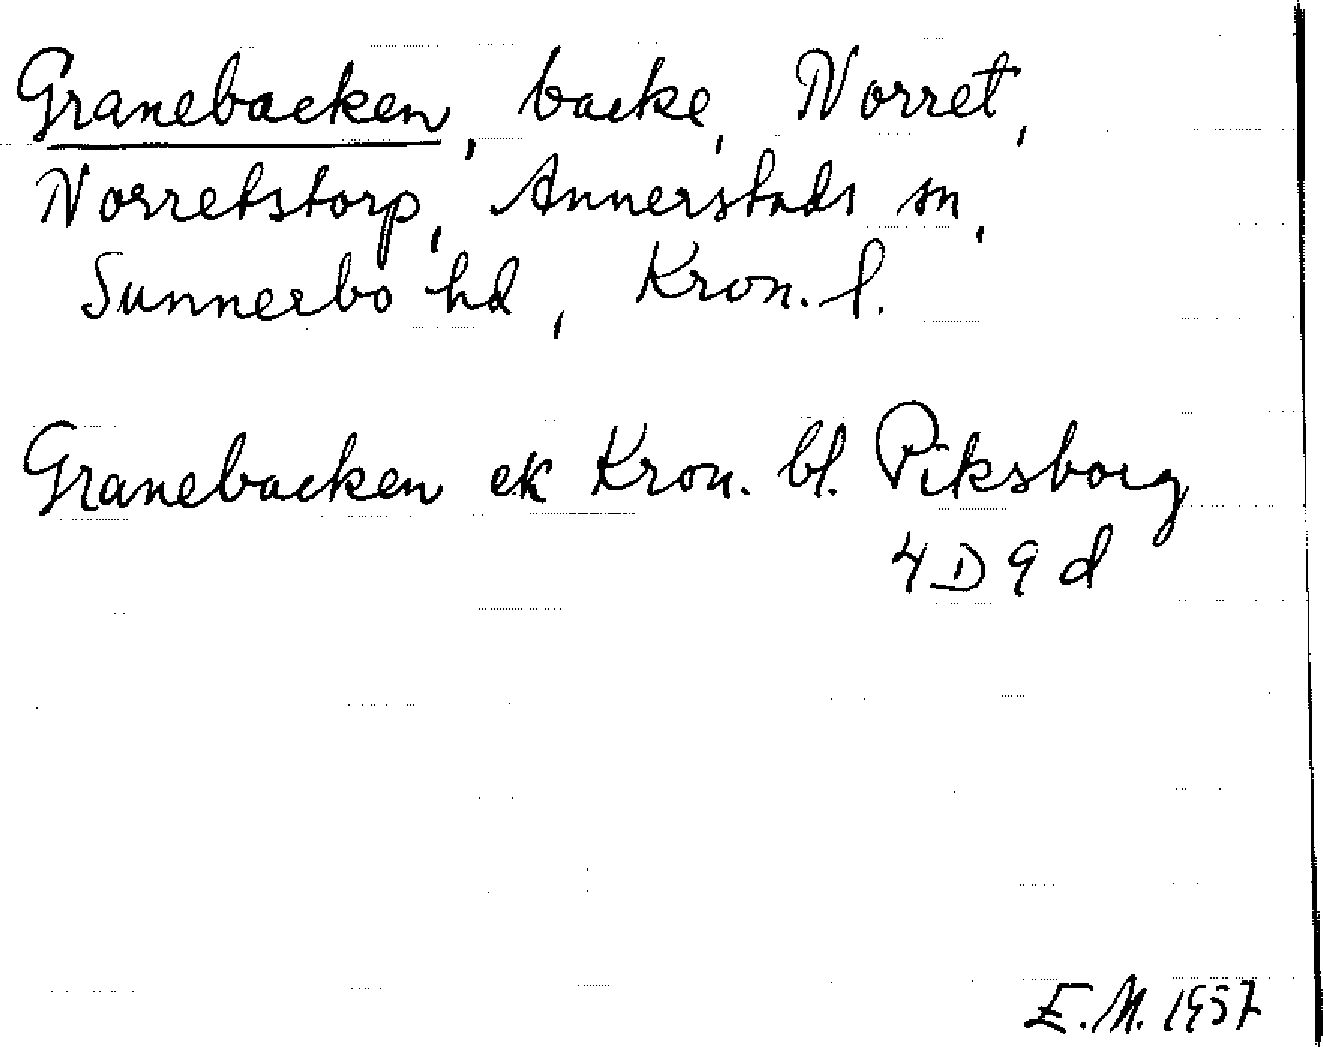 Granebacken, backe, Norret,
Norretstorp, Annerstads sn,
Sunnerbo hd, Kron. l.
Granebacken ek Kron. bl. Piksborg
4 D 9 d
E.M. 1957